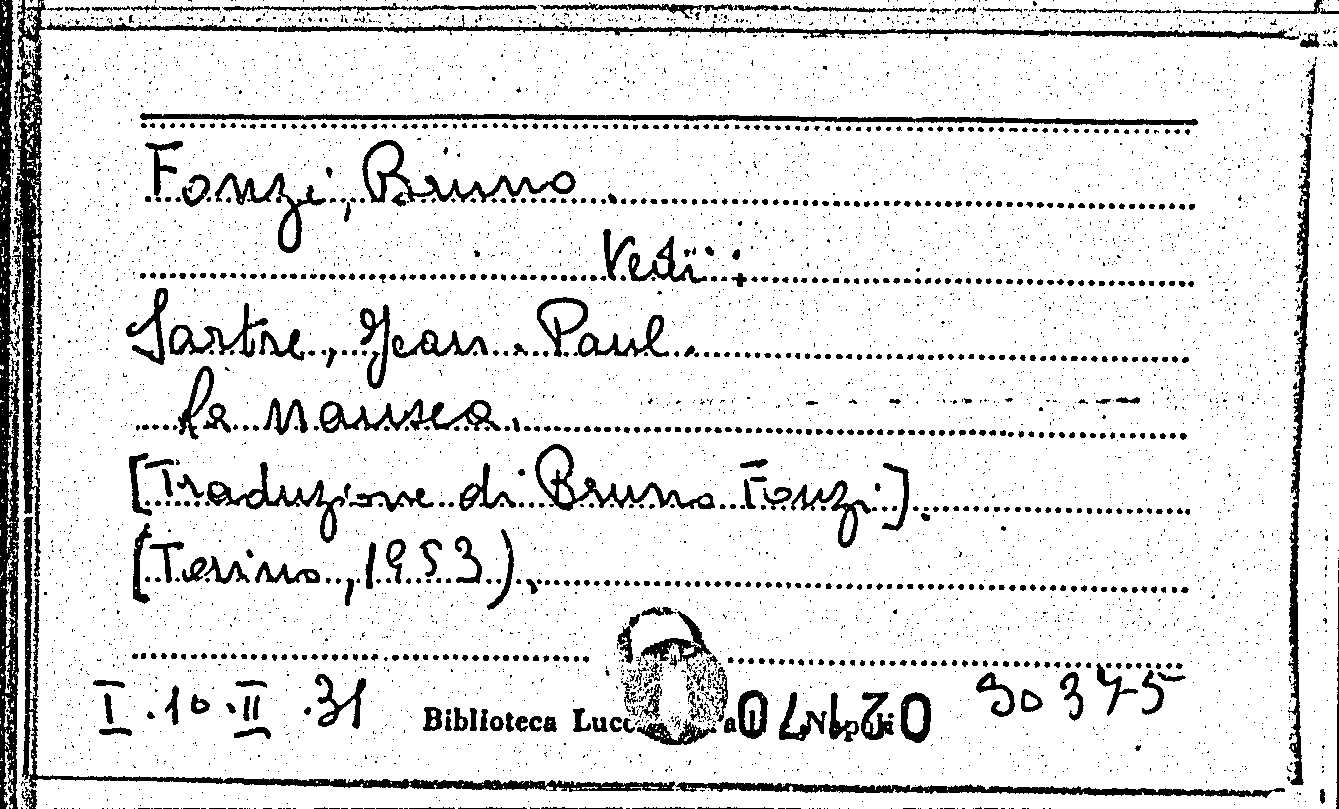 Fonzi, Bruno.
Vedi:
Sartre, Jean-Paul.
La nausea.
[Traduzione di Bruno Fonzi].
(Torino, 1953).
I.10.II.31 Biblioteca Napoli 90375